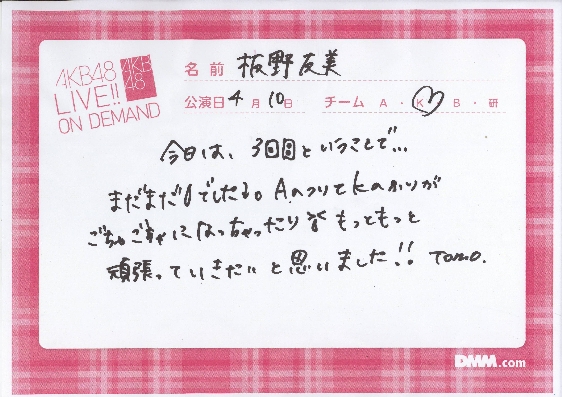 AKB48
LIVE!!
ON DEMAND
AKB
48
名前 板野友美
公演日 4月10日 チーム A・K・B・研
今日は、3回目ということで…
まだまだでしたね。AのフリとKのフリが
ごちゃごちゃになっちゃったり もっともっと
頑張っていきたいと思いました!! TOMO.
DMM.com